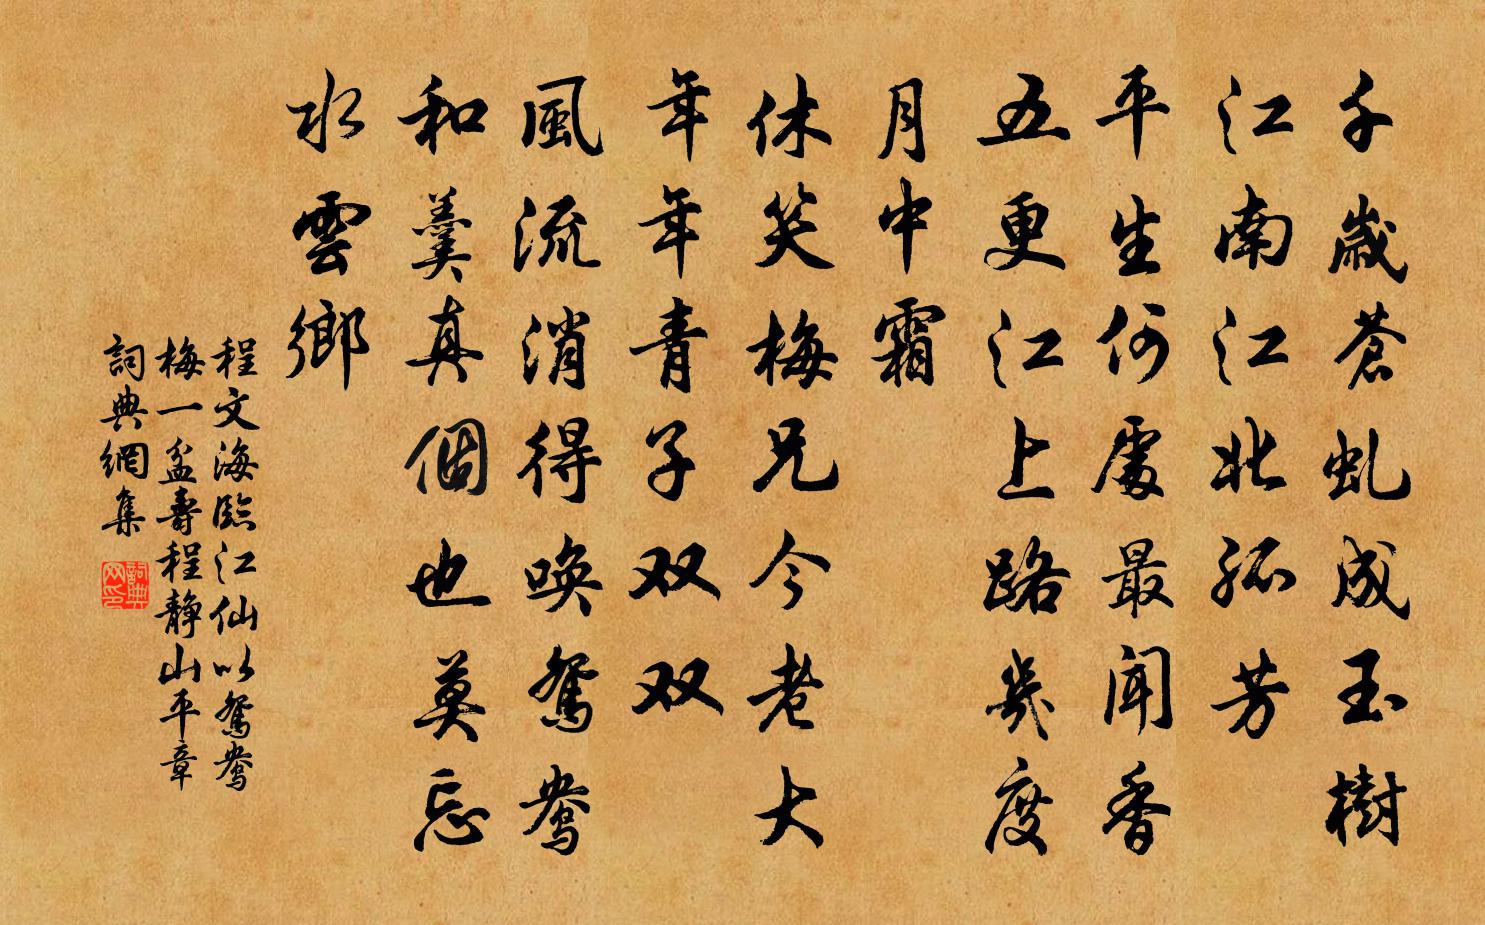 千歲蒼虬成玉樹
江南江北孤芳
平生何處最聞香
五更江上路幾度
月中霜
休笑梅兄今老大
年年青子双双
風流消得喚鴛鴦
和羹真個也莫忘
水雲鄉
程文海臨江仙以鴛鴦
梅一盆壽程靜山平章
詞典網集
詞典网印